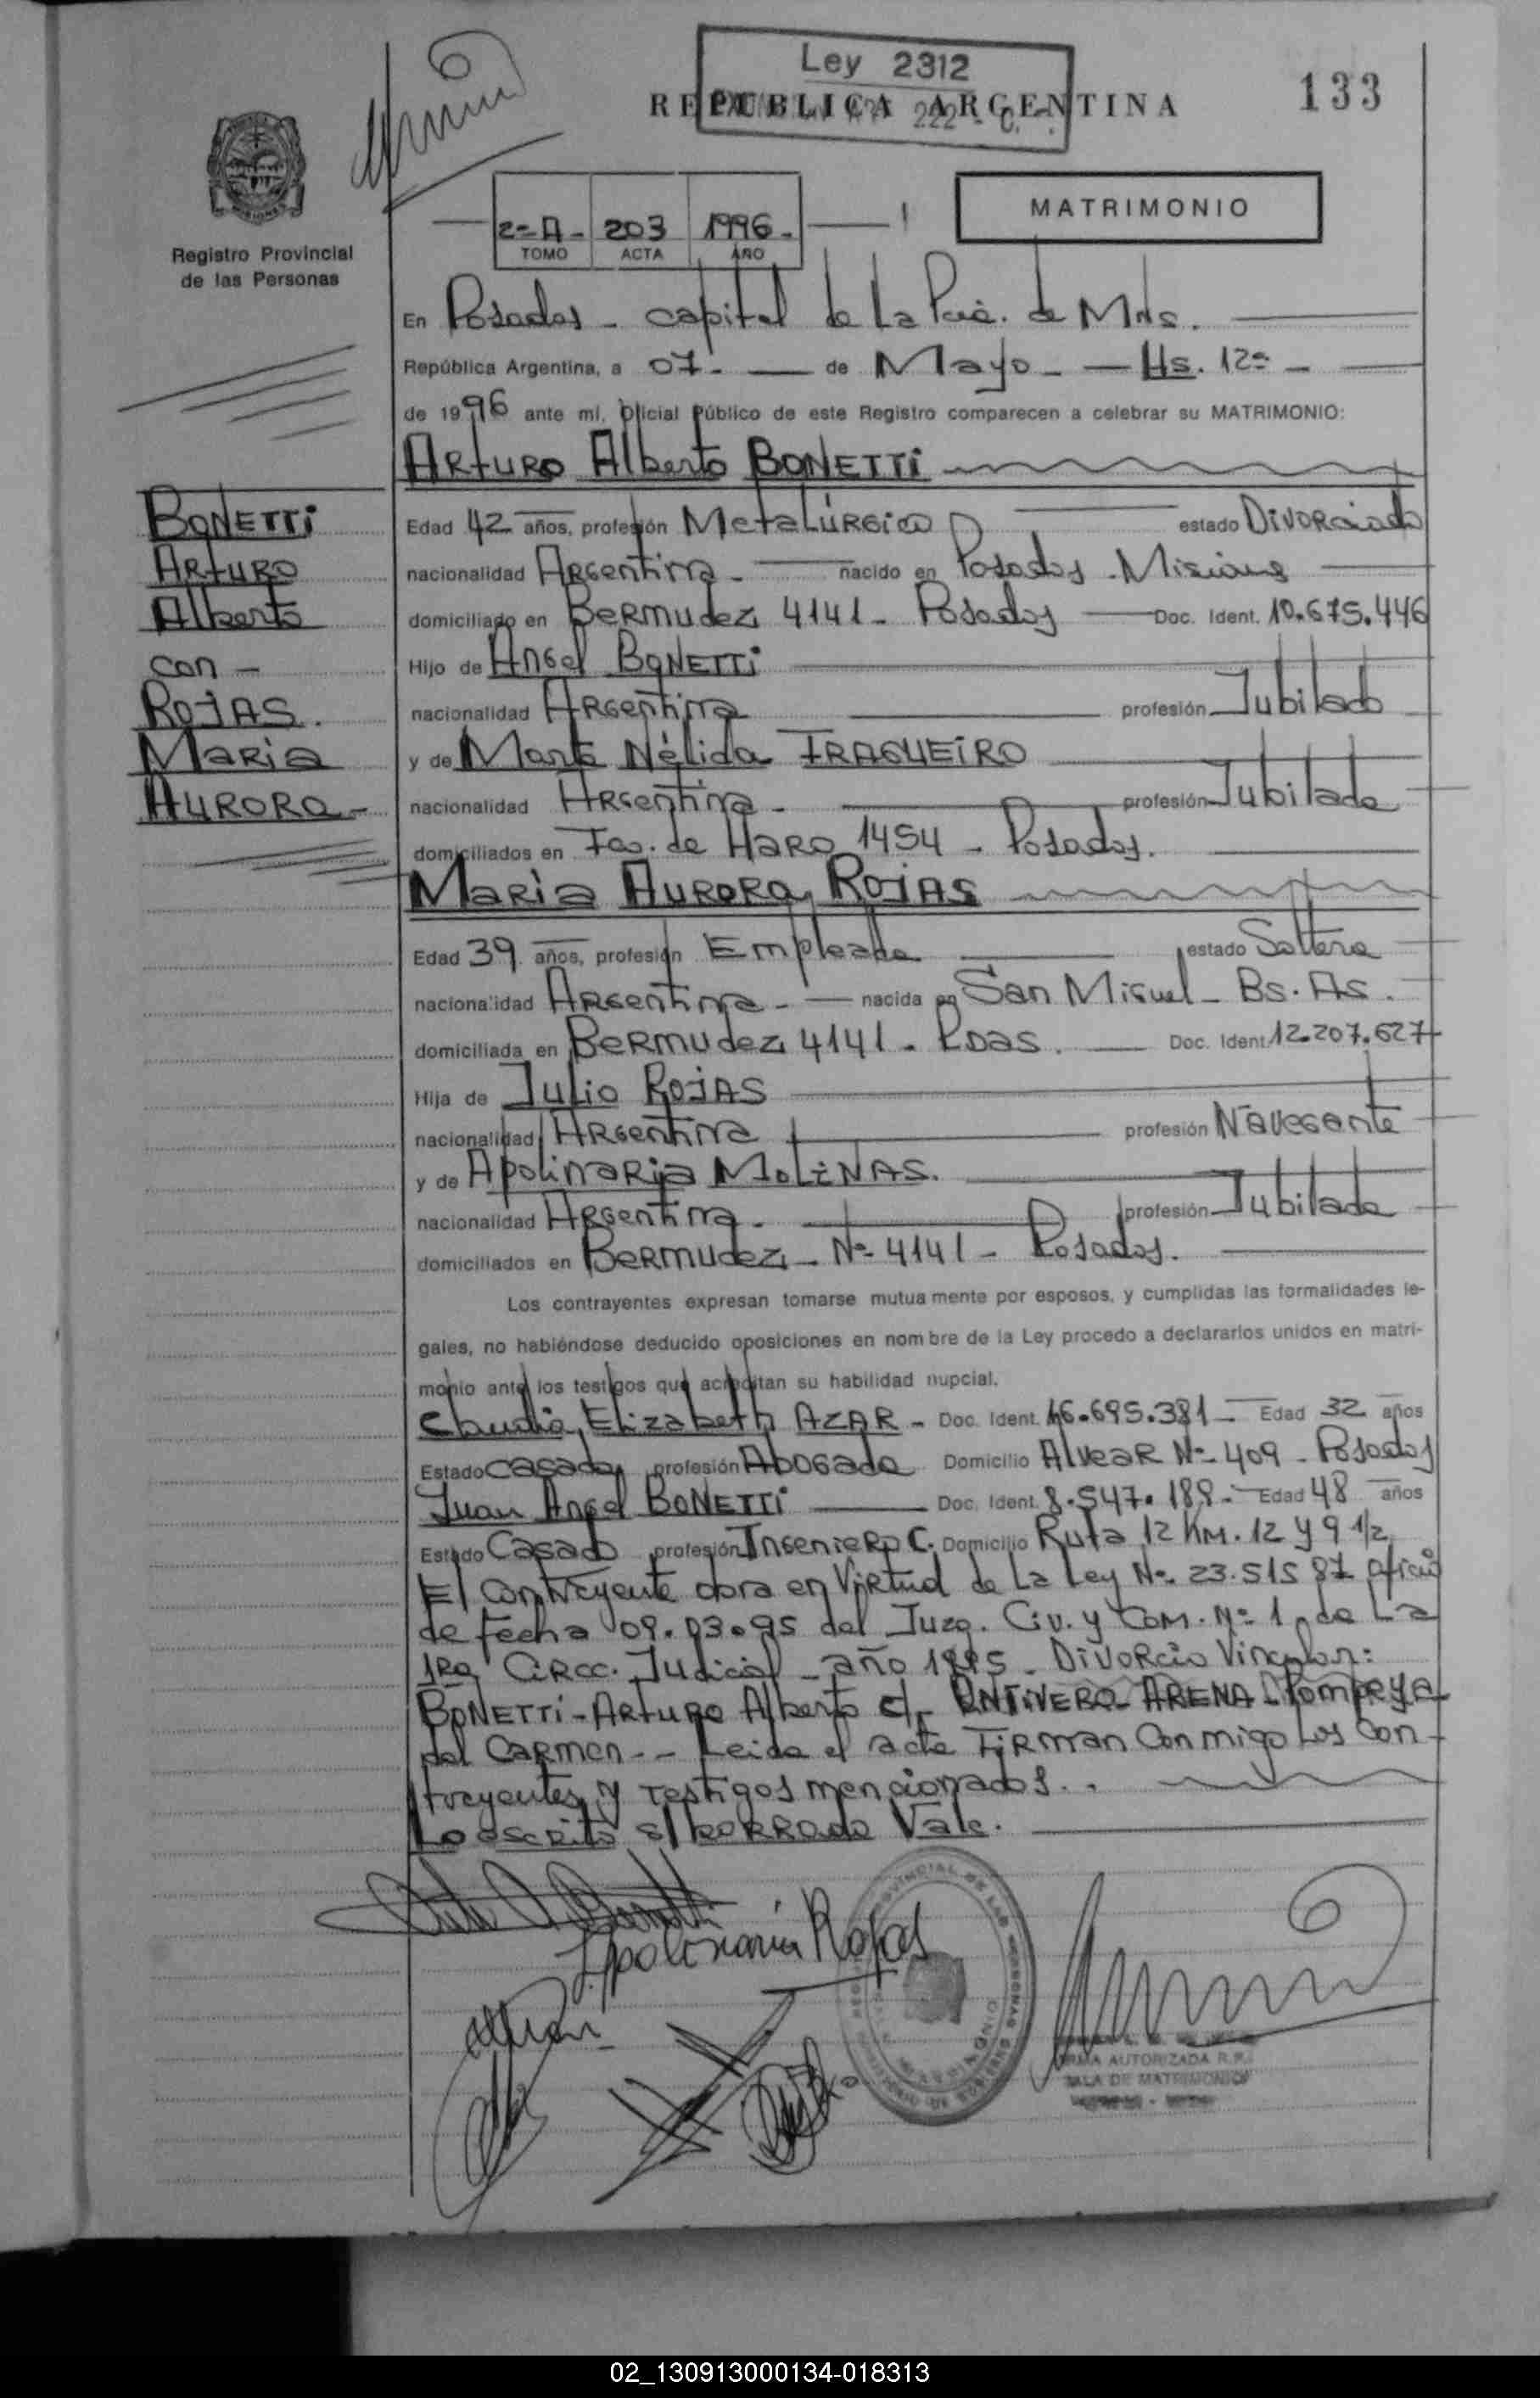 Ley 2312
REPUBLICA ARGENTINA
133
Registro Provincial
de las Personas
2=A- 203 1996-
TOMO ACTA AÑO
MATRIMONIO
En Posadas - capital de La Pcia. de Mnes.
República Argentina, a 07- de Mayo - Hs. 12=
de 1996 ante mí, Oficial Público de este Registro comparecen a celebrar su MATRIMONIO:
ARTURO Alberto BONETTI
BONETTI
ARTURO
Alberto
con -
ROJAS.
MARIA
AURORA -
Edad 42 años, profesión METALÚRGICO estado DIVORCIADO
nacionalidad Argentina - nacido en Posadas - Misiones
domiciliado en BERMUDEZ 4141 - Posadas Doc. Ident. 10.675.446
Hijo de Angel BONETTI
nacionalidad Argentina profesión Jubilado
y de Marta Nélida IRAGUEIRO
nacionalidad Argentina - profesión Jubilada
domiciliados en Fco. de HARO 1454 - Posadas.
MARIA AURORA ROJAS
Edad 39 años, profesión Empleada estado Soltera
nacionalidad Argentina - nacida en San Miguel - Bs. As.
domiciliada en BERMUDEZ 4141 - Pdas. Doc. Ident. 12.207.627
Hija de Julio ROJAS
nacionalidad Argentina profesión Navegante
y de Apolinaria MOLINAS.
nacionalidad Argentina - profesión Jubilada
domiciliados en BERMUDEZ - Nº 4141 - Posadas.
Los contrayentes expresan tomarse mutuamente por esposos, y cumplidas las formalidades le-
gales, no habiéndose deducido oposiciones en nombre de la Ley procedo a declararlos unidos en matri-
monio ante los testigos que acreditan su habilidad nupcial.
Claudia Elizabeth AZAR - Doc. Ident. 16.695.381 - Edad 32 años
Estado Casada profesión Abogada Domicilio Alvear Nº 409 - Posadas
Juan Angel BONETTI Doc. Ident. 8.547.189 - Edad 48 años
Estado Casado profesión Ingeniero C. Domicilio Ruta 12 KM. 12 y 9 1/2
El contrayente obra en Virtud de La Ley Nº 23.515 87 oficio
de fecha 09.03.95 del Juzg. Civ. y Com. Nº 1 de La
1ra Circc. Judicial - año 1995 - Divorcio Vincular:
BONETTI - Arturo Alberto c/ ONTIVERO ARENA - Pompeya
del Carmen - - Leida el acta Firman Conmigo Los Con-
trayentes y Testigos mencionados.
Lo escrito s/ borrado Vale.
Apolinaria Rojas
FIRMA AUTORIZADA R.P.
SALA DE MATRIMONIOS
02_130913000134-018313